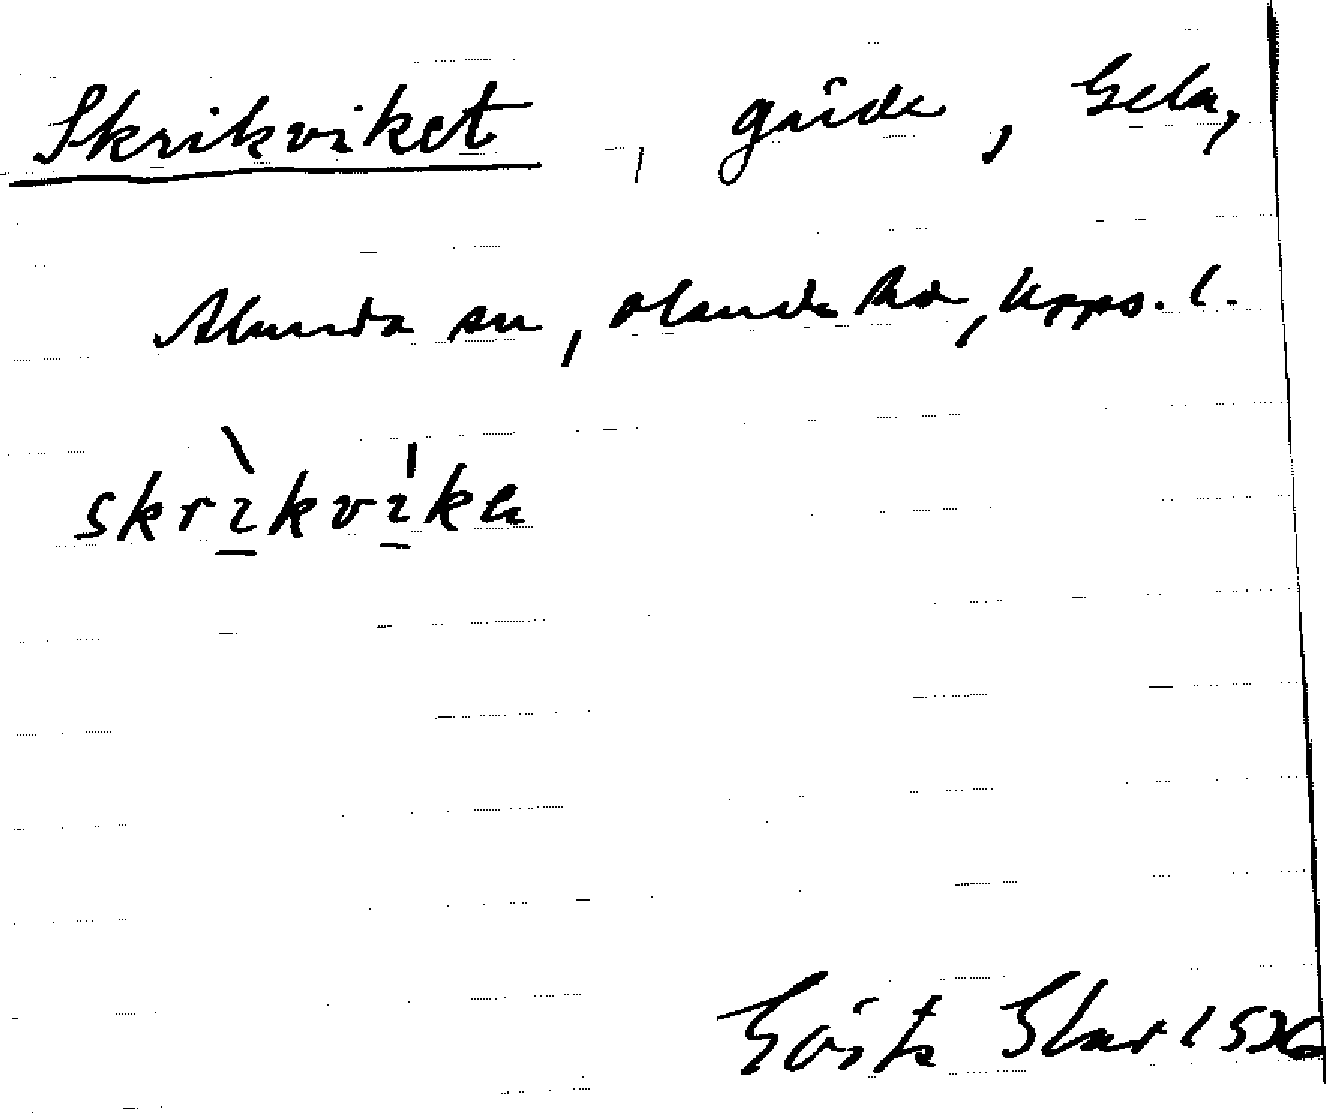 Skrikviket, gärde, Gela,
Alunda sn, Olands hd, Upps. l.
skrìkvíka
Gösta